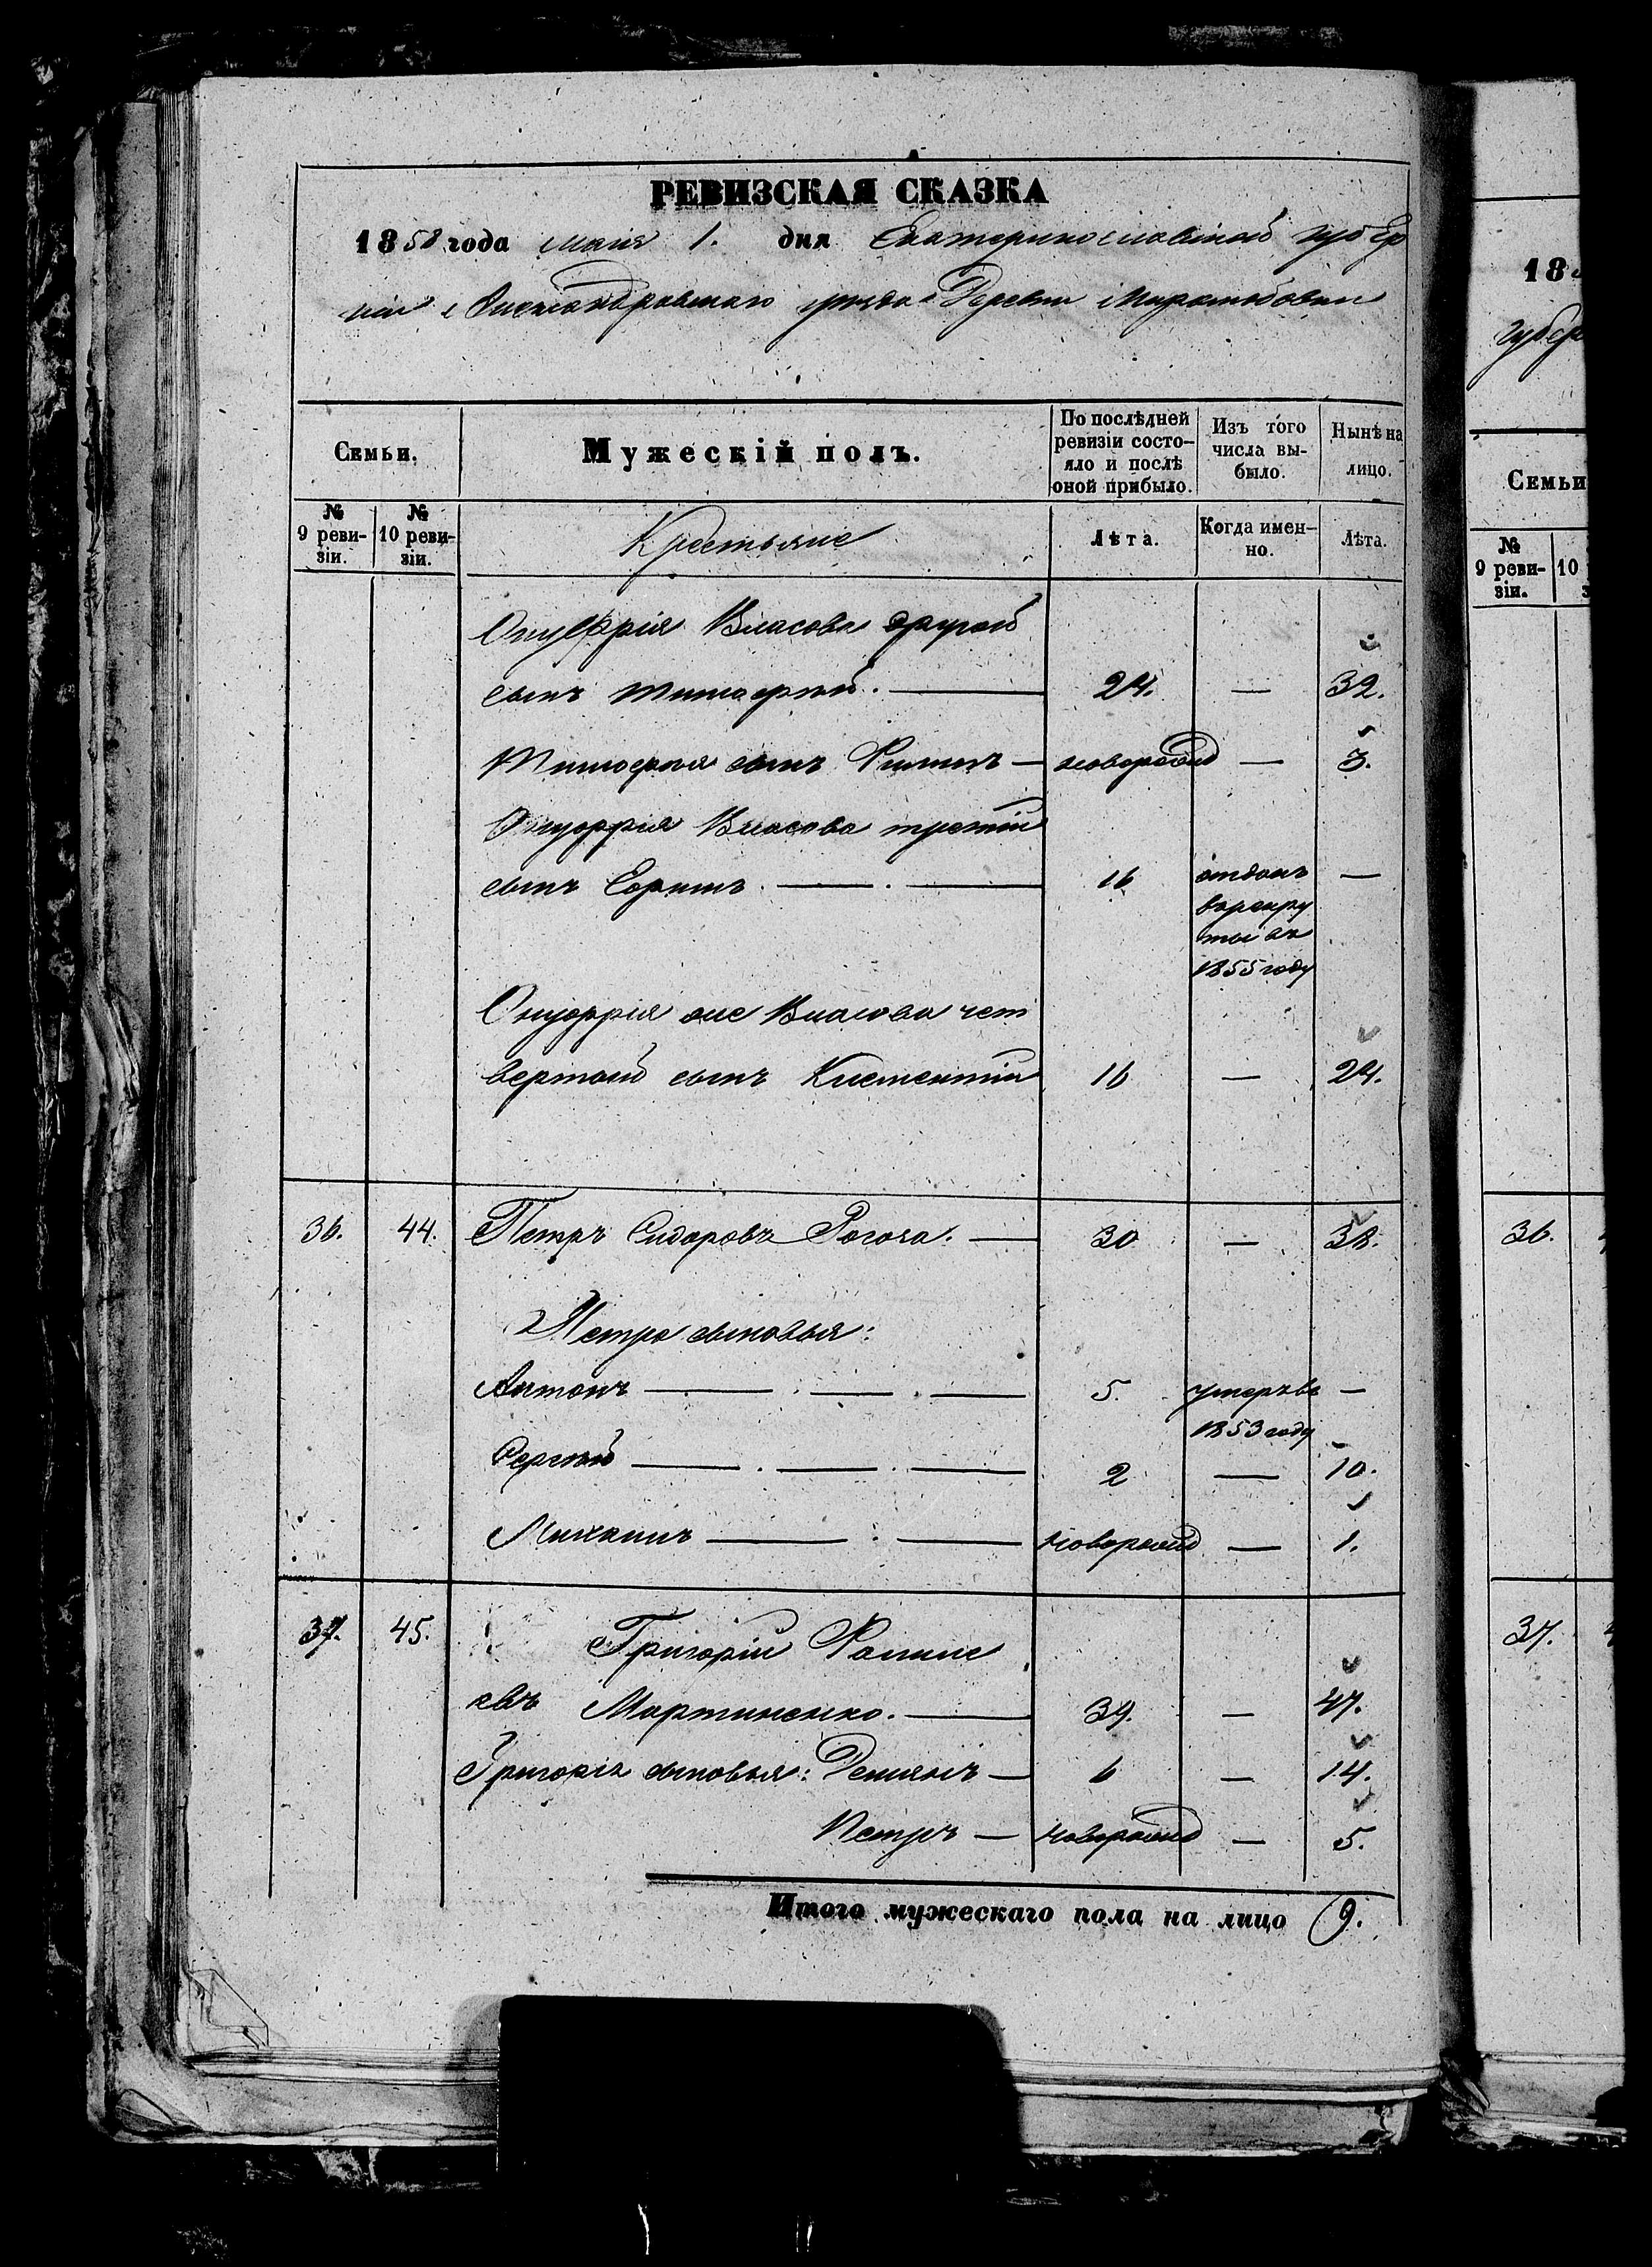 РЕВИЗСКАЯ СКАЗКА
1858 года мая 1. дня Екатеринославской губер
нии Александровскаго уѣзда Деревни Миролюбовки
Семьи.
Мужескій полъ.
По послѣдней ревизіи состояло и послѣ оной прибыло.
Изъ того числа выбыло.
Нынѣ на лицо.
№ 9 ревизіи.
№ 10 ревизіи.
Крестьяне
Лѣта.
Когда именно.
Лѣта.
Онуфрія Власова другой
сынъ Тимофей. — 24. — 32.
Тимофея сынъ Филипъ — новорожд — 3.
Онуфрія Власова третій
сынъ Ефимъ. — 16 отданъ —
в рекру
ты въ
1855 году
Онуфрія же Власова чет
вертый сынъ Климентій 16 — 24.
36. 44. Петръ Сидоровъ Рогоза. — 30 — 38.
Петра сыновья:
Антонъ — 5. умеръ въ —
1853 году
Сергѣй — 2 — 10.
Михаилъ — новорожд — 1.
37. 45. Григорій
Мартиненко. — 39. — 47.
Григорія сыновья: Демянъ — 6 — 14.
Петръ — новорожд — 5.
Итого мужескаго пола на лицо 9.
18
губер
Семьи
№ 9 ревизіи.
10
36.
37.